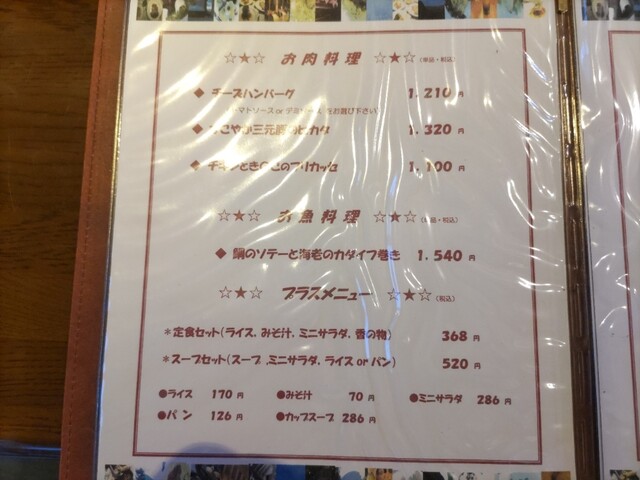 ☆★☆ お肉料理 ☆★☆(単品・税込)
◆ チーズハンバーグ 1,210円
(トマトソース or デミソース をお選び下さい)
◆ すこやか三元豚のピカタ 1,320円
◆ チキンときのこのフリカッセ 1,100円
☆★☆ お魚料理 ☆★☆(単品・税込)
◆ 鯛のソテーと海老のカダイフ巻き 1,540円
☆★☆ プラスメニュー ☆★☆(税込)
*定食セット(ライス、みそ汁、ミニサラダ、香の物) 368円
*スープセット(スープ、ミニサラダ、ライス or パン) 520円
●ライス 170円 ●みそ汁 70円 ●ミニサラダ 286円
●パン 126円 ●カップスープ 286円